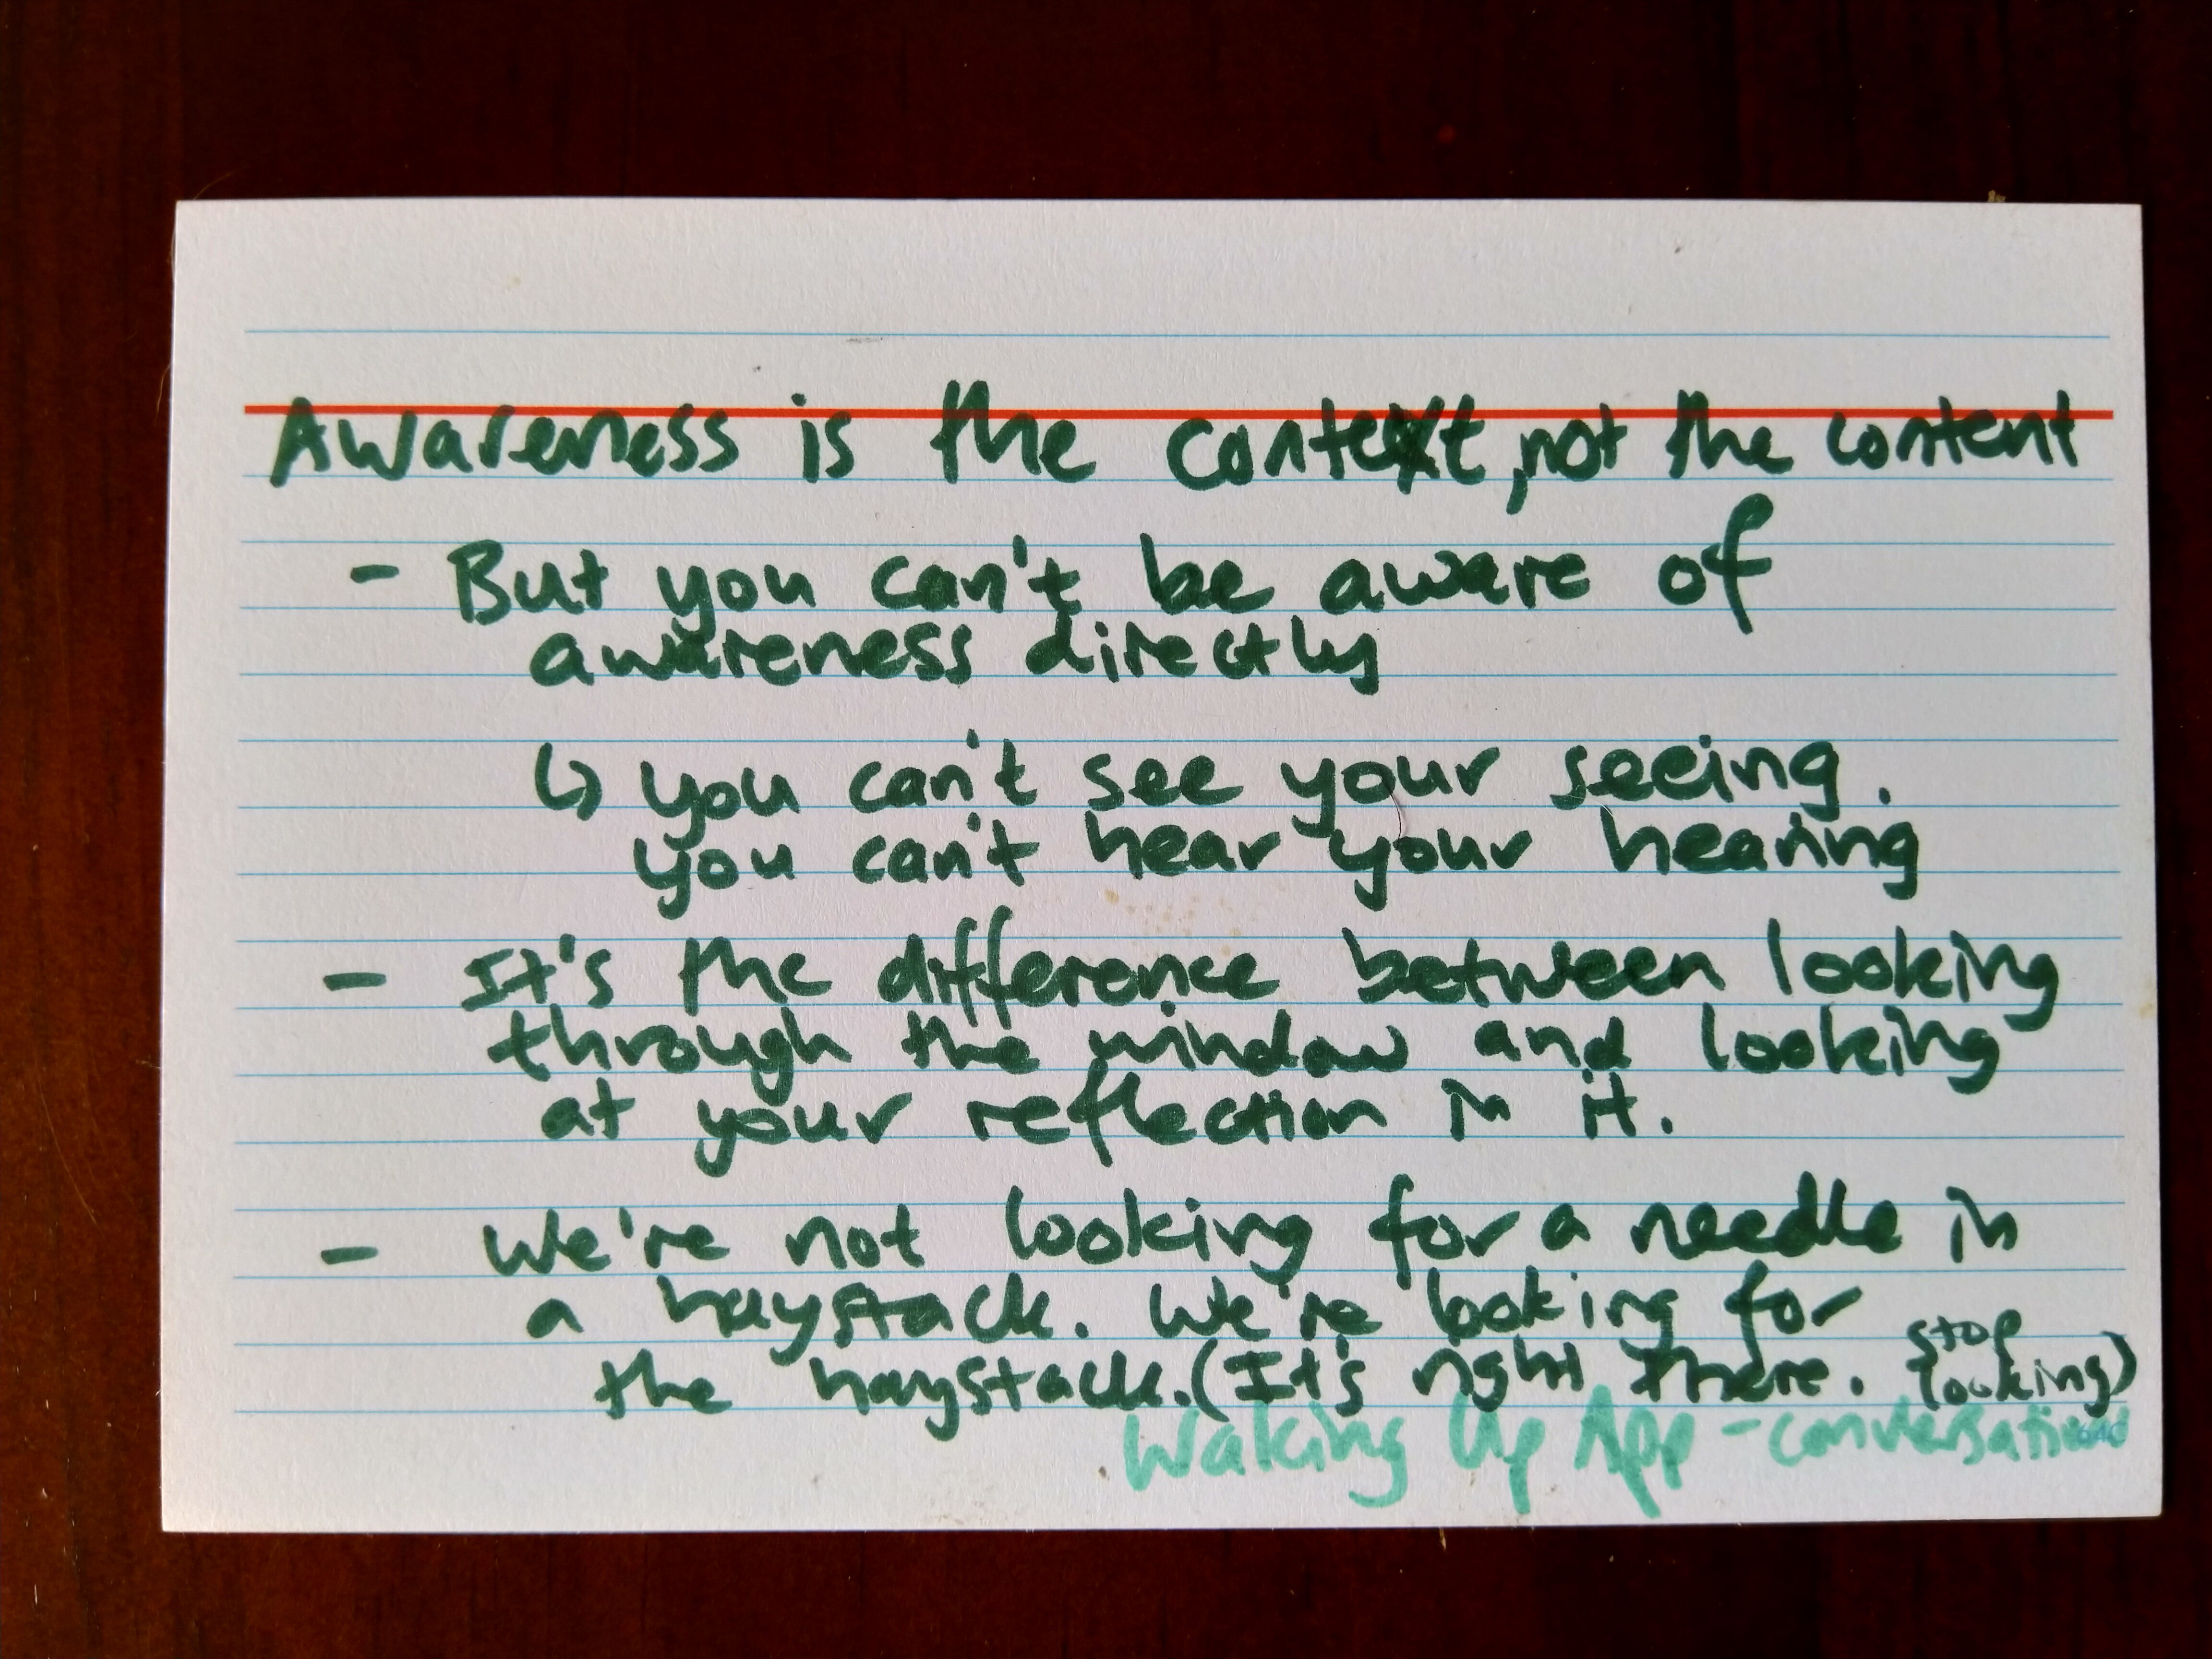 Awareness is the context, not the content
- But you can't be aware of
awareness directly
↳ you can't see your seeing.
you can't hear your hearing
- It's the difference between looking
through the window and looking
at your reflection in it.
- We're not looking for a needle in
a haystack. We're looking for
the haystack. (It's right there. stop
looking)
Waking Up App - conversations